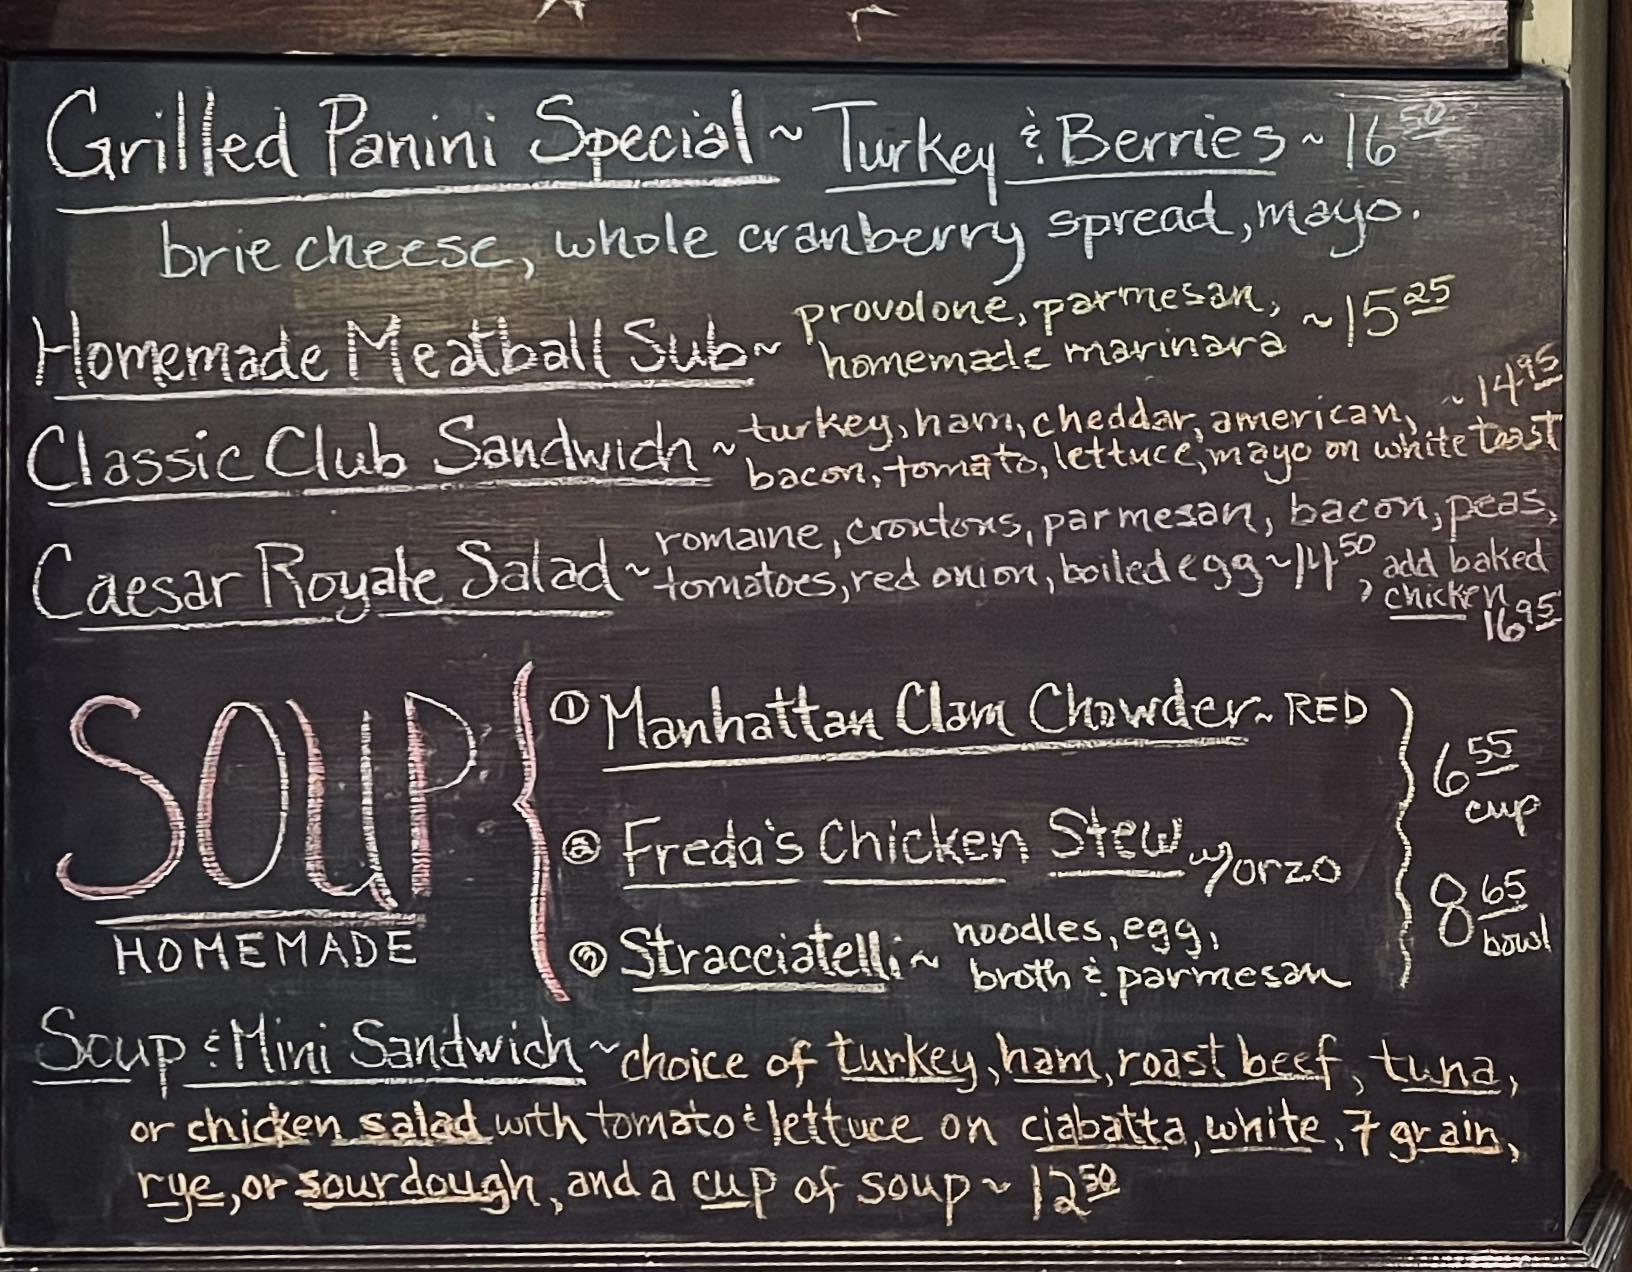 Grilled Panini Special ~ Turkey & Berries ~ 16 50
brie cheese, whole cranberry spread, mayo.
Homemade Meatball Sub ~ provolone, parmesan,
homemade marinara ~ 15 25
Classic Club Sandwich ~ turkey, ham, cheddar, american, ~ 14 95
bacon, tomato, lettuce, mayo on white toast
Caesar Royale Salad ~ romaine, croutons, parmesan, bacon, peas,
tomatoes, red onion, boiled egg ~ 14 50, add baked
chicken
16 95
SOUP:
HOMEMADE
① Manhattan Clam Chowder ~ RED
② Freda's Chicken Stew w/orzo
③ Stracciatelli ~ noodles, egg,
broth & parmesan
6 55
cup
8 65
bowl
Soup & Mini Sandwich ~ choice of turkey, ham, roast beef, tuna,
or chicken salad with tomato & lettuce on ciabatta, white, 7 grain,
rye, or sourdough, and a cup of soup ~ 12 50